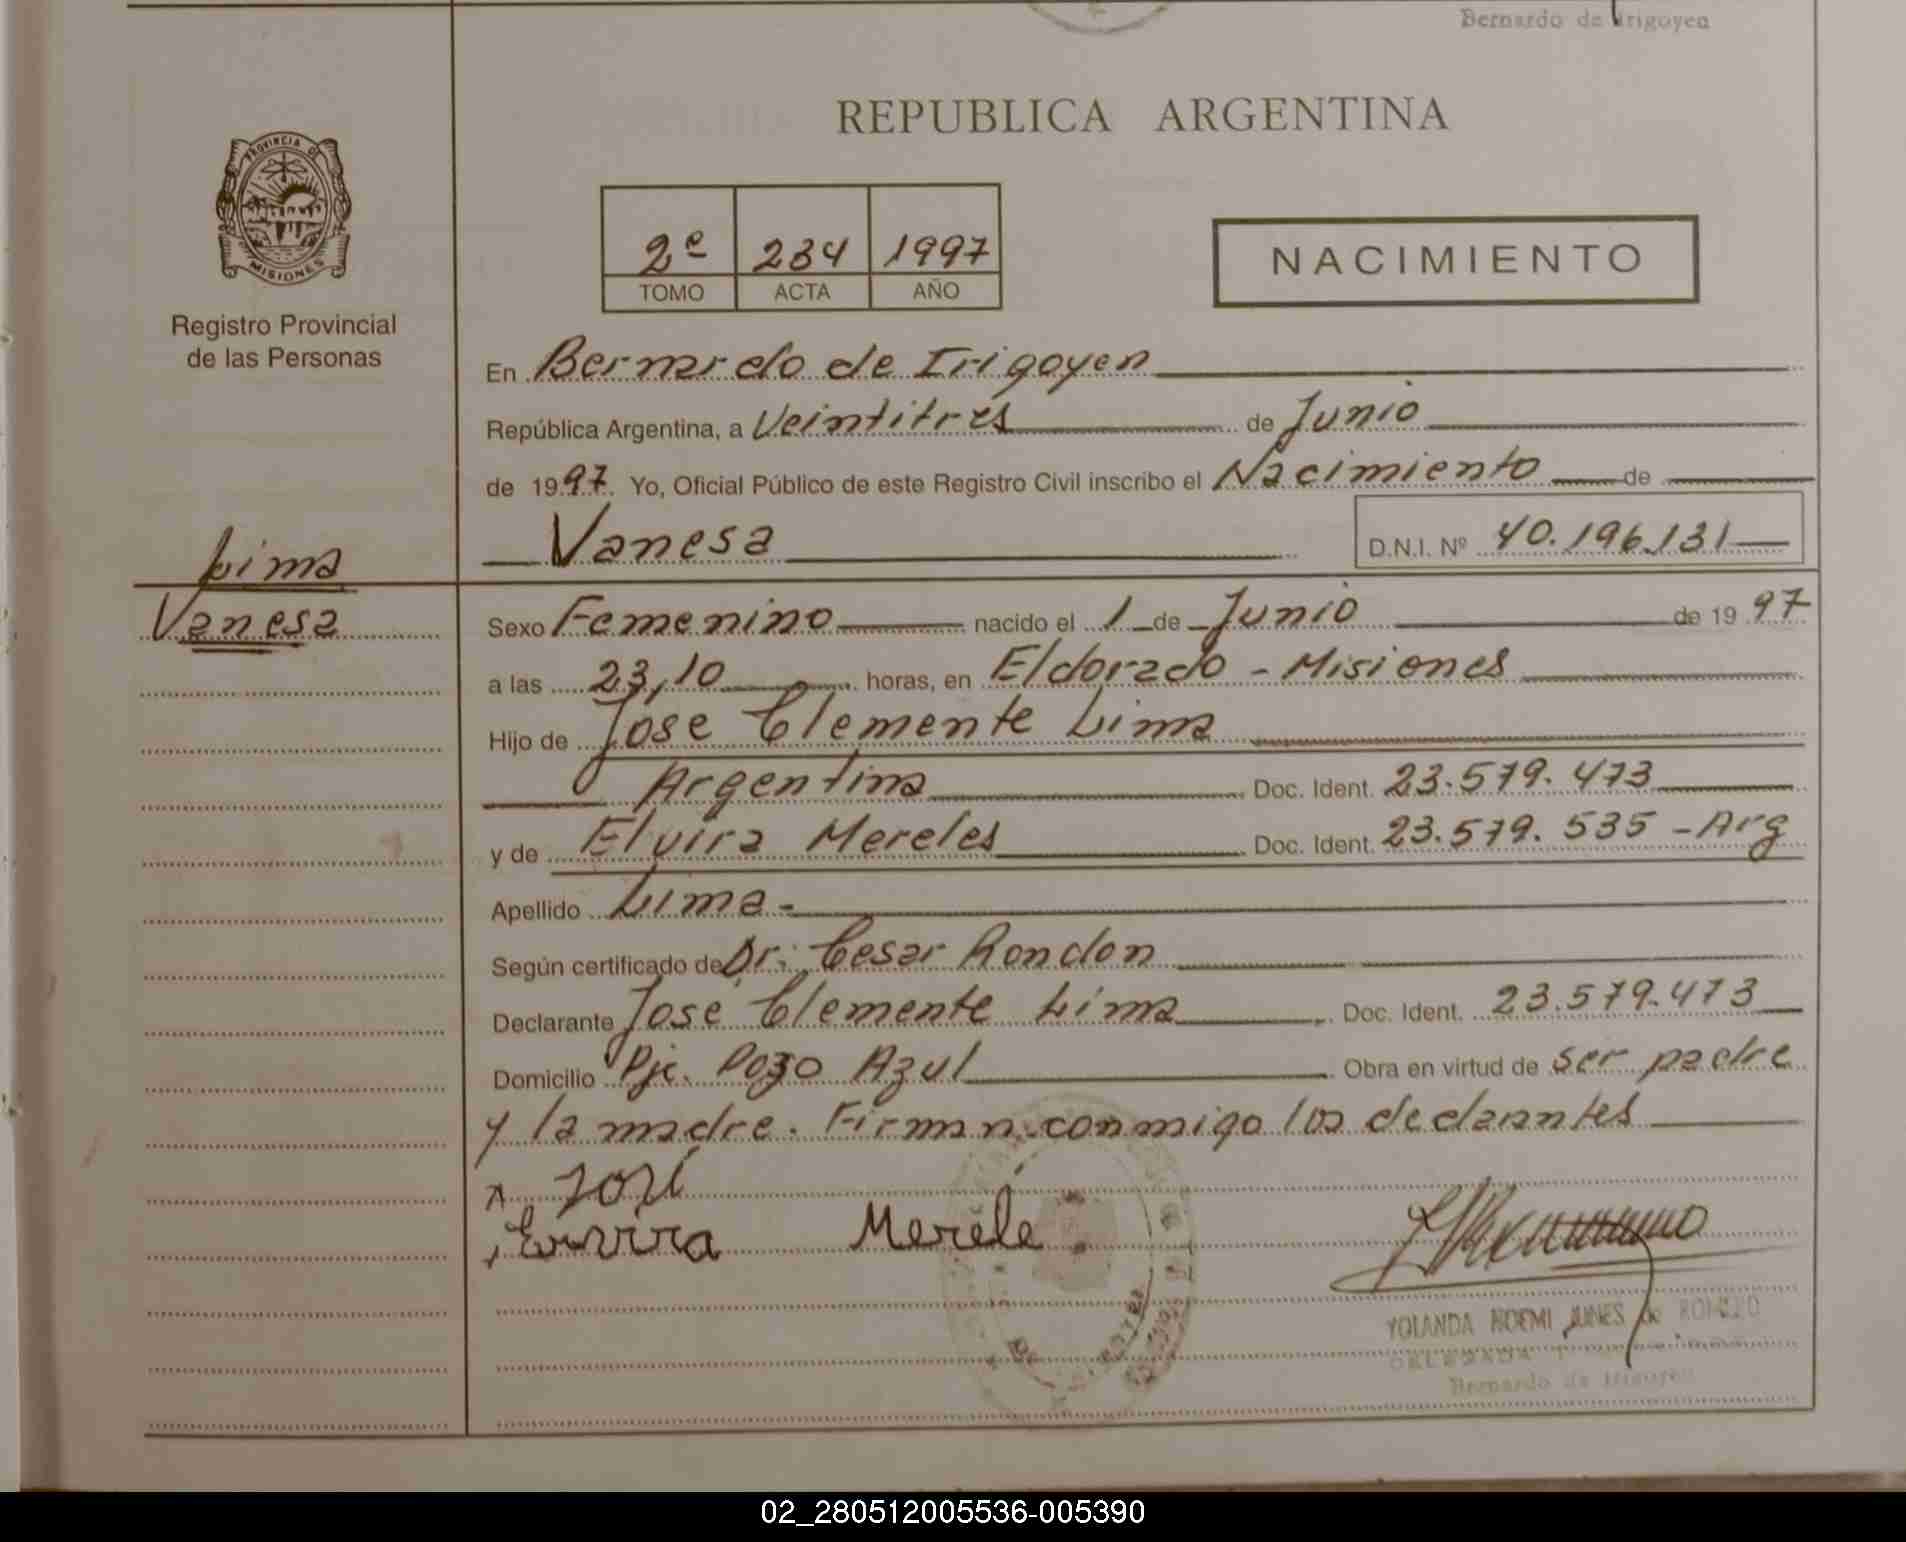 Bernardo de Irigoyen
REPUBLICA ARGENTINA
PROVINCIA DE
MISIONES
Registro Provincial
de las Personas
2e 234 1997
TOMO ACTA AÑO
NACIMIENTO
En Bernardo de Irigoyen
República Argentina, a Veintitrés de Junio
de 1997. Yo, Oficial Público de este Registro Civil inscribo el Nacimiento de
Vanesa D.N.I. Nº 40.196.131
Lima
Vanesa
Sexo Femenino nacido el 1 de Junio de 1997
a las 23,10 horas, en Eldorado - Misiones
Hijo de José Clemente Lima
Argentina Doc. Ident. 23.579.473
y de Elvira Mereles Doc. Ident. 23.579.535 - Arg
Apellido Lima -
Según certificado de Dr. Cesar Rondon
Declarante José Clemente Lima Doc. Ident. 23.579.473
Domicilio Pje. Pozo Azul Obra en virtud de ser padre
y la madre. Firman conmigo los declarantes
José
Merele
YOLANDA NOEMI JUNES de ROMERO
DELEGADA
Bernardo de Irigoyen
02_280512005536-005390